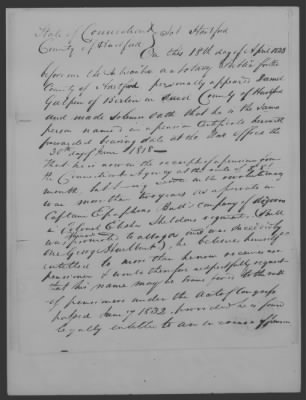 State of Connecticut } Sct Hartford
County of Hartford }
On this 18th day of April 1833
before me the subscriber a notary public for the
County of Hartford personally appeared Daniel
Galpin of Berlin in said County of Hartford
and made solemn oath that he is the same
person named in a pension Certificate herewith
forwarded bearing date at the War Office the
30th day of June 1818
That he is now in the receipt of a pension from
the Connecticut Agency at the rate of
month, but having
was more than two years as a private in
Captain Epaphras Bull's company of dragoons
in Colonel Elisha Sheldon's regiment,
was promoted to and was succeeded by
one George Hurlbut) he believes himself
entitled to more than he now receives as a
pensioner & would therefore respectfully request
that his name may be transferred to the roll
of pensioners under the act of Congress
passed June 7 1832, provided he is found
legally entitled to an increase of pension